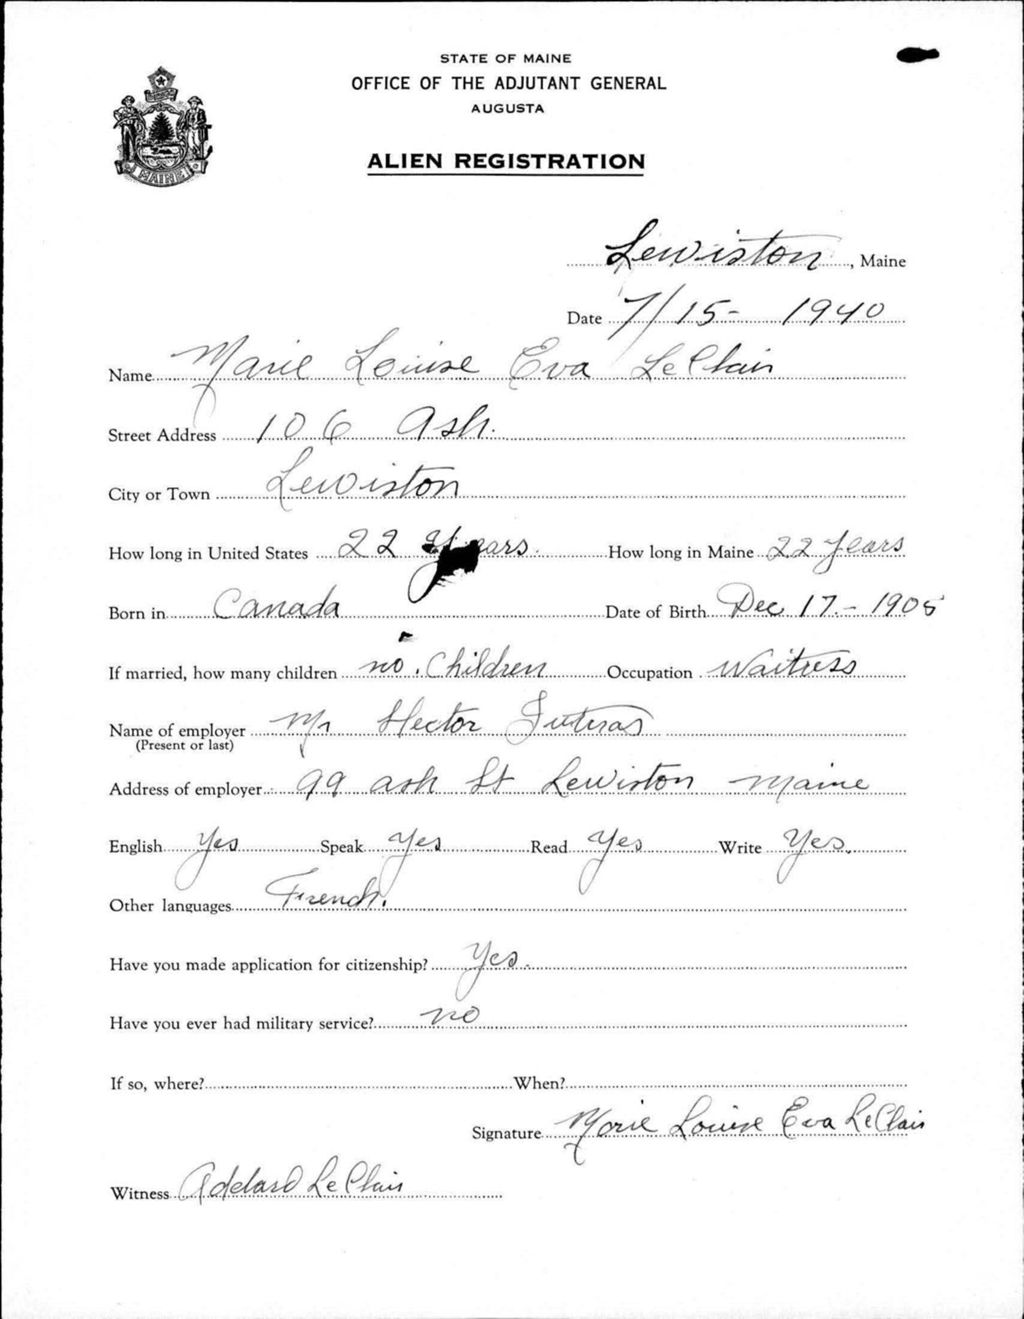 STATE OF MAINE
OFFICE OF THE ADJUTANT GENERAL
AUGUSTA
MAINE
ALIEN REGISTRATION
Lewiston, Maine
Date 7/15- 1940
Name Marie Louise Eva LeClair
Street Address 106 Ash.
City or Town Lewiston
How long in United States 22 Years. How long in Maine 22 years
Born in Canada Date of Birth Dec 17.- 1905
If married, how many children no. Children Occupation Waitress
Name of employer Mr Hector
(Present or last)
Address of employer 99 ash St Lewiston maine
English Yes Speak Yes Read Yes Write Yes.
Other languages French.
Have you made application for citizenship? Yes.
Have you ever had military service? no
If so, where? When?
Signature Marie Louise Eva LeClair
Witness Adelard LeClair